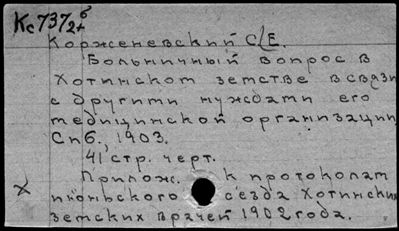 Кс 737 2+б
Корженевский С/Е.
Больничный вопрос в
Хотинском земстве в связи
с другими нуждами его
медицинской организации,
Спб., 1903.
41 стр. черт.
Прилож. к протоколам
июньского съезда Хотинских
земских врачей 1902 года.